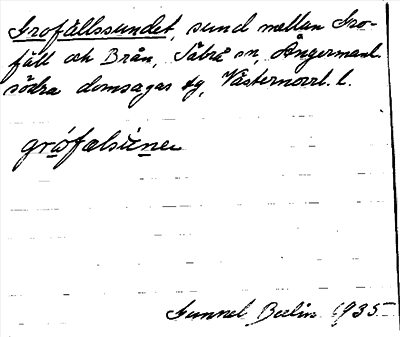 Grofällssundet, sund mellan Gro-
fäll och Brån, Säbrå sn, Ångermanl.
södra domsagas tg, Västernorrl. l.
grófalsúne
Gunnel Boelin 1935